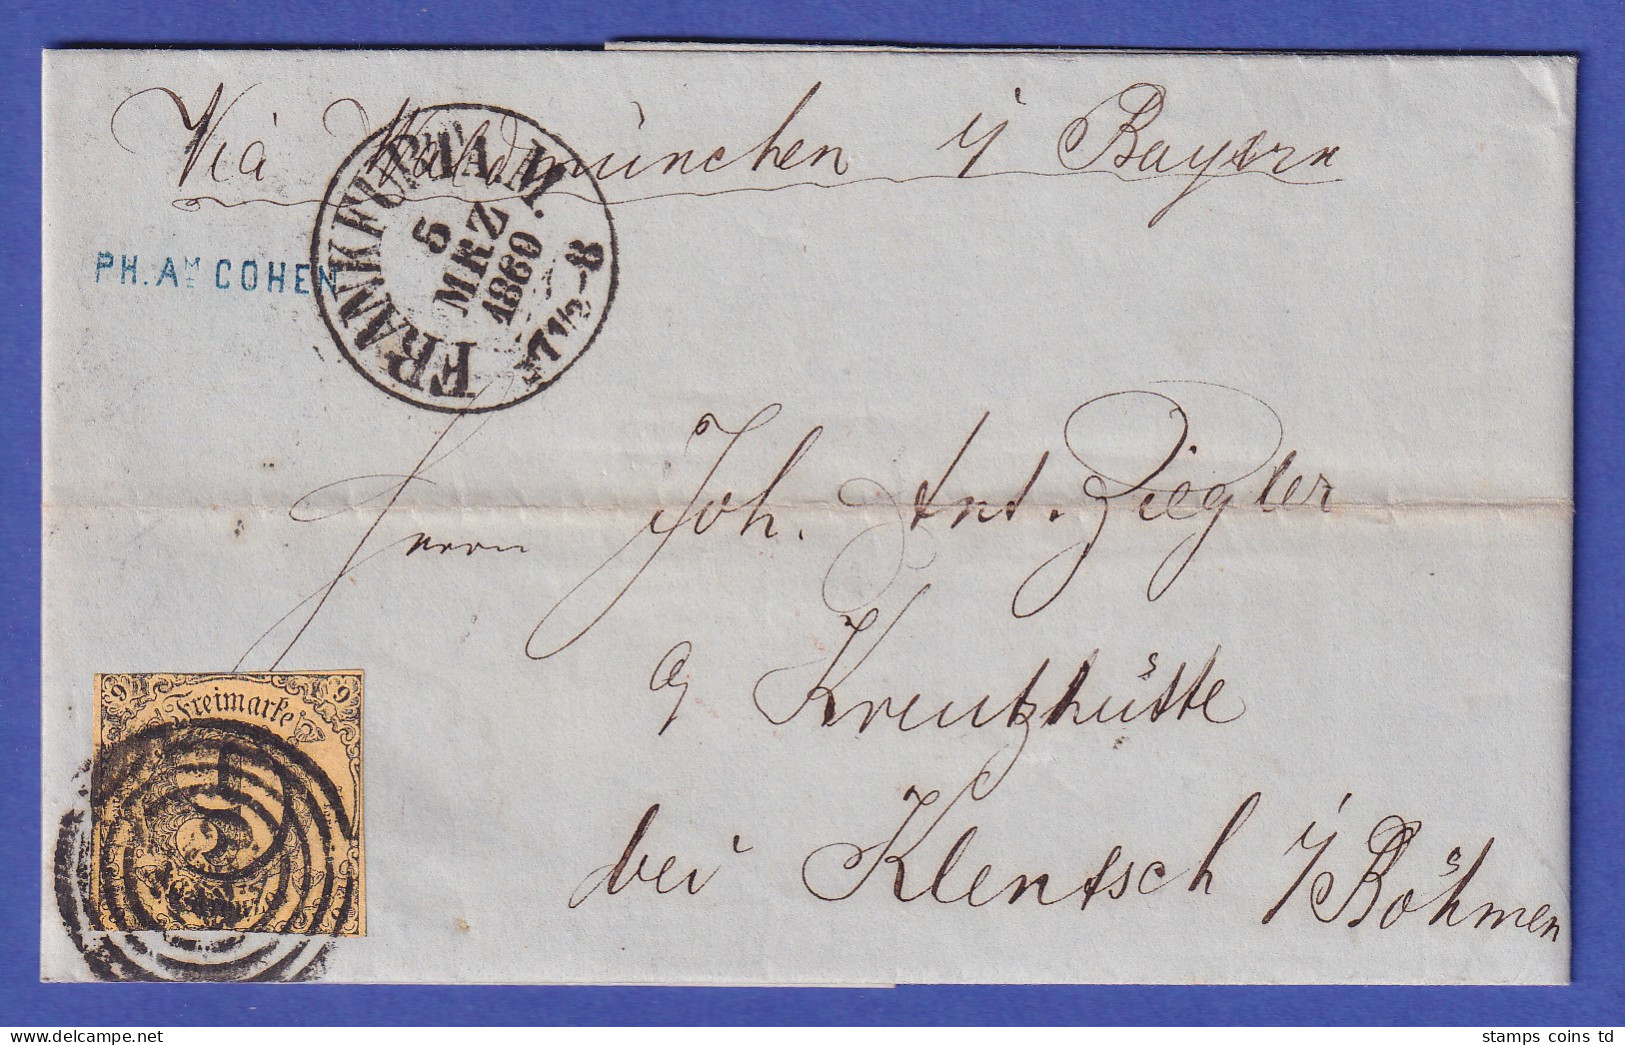 Via Waldmünchen i/ Bayern
FRANKFURT A. M.
5
MRZ
1860
7 1/2-8
PH. AM COHEN
Herrn Joh. Ant. Ziegler
Kreutzhütte
bei Klentsch i/ Böhmen
9 9
Freimarke
stamps coins td